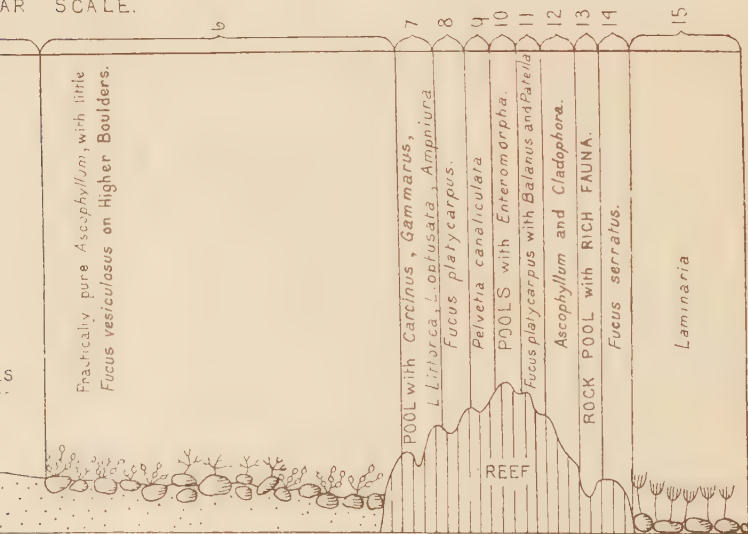 AR SCALE.
6
7
8
9
10
11
12
13
14
15
Practically pure Ascophyllum, with little
Fucus vesiculosus on Higher Boulders.
POOL with Carcinus, Gammarus,
L Littorea, L. obtusata, Amphiura
Fucus platycarpus.
Pelvetia canaliculata
POOLS with Enteromorpha.
Fucus platycarpus with Balanus and Patella
Ascophyllum and Cladophora.
ROCK POOL with RICH FAUNA.
Fucus serratus.
Laminaria
S
REEF